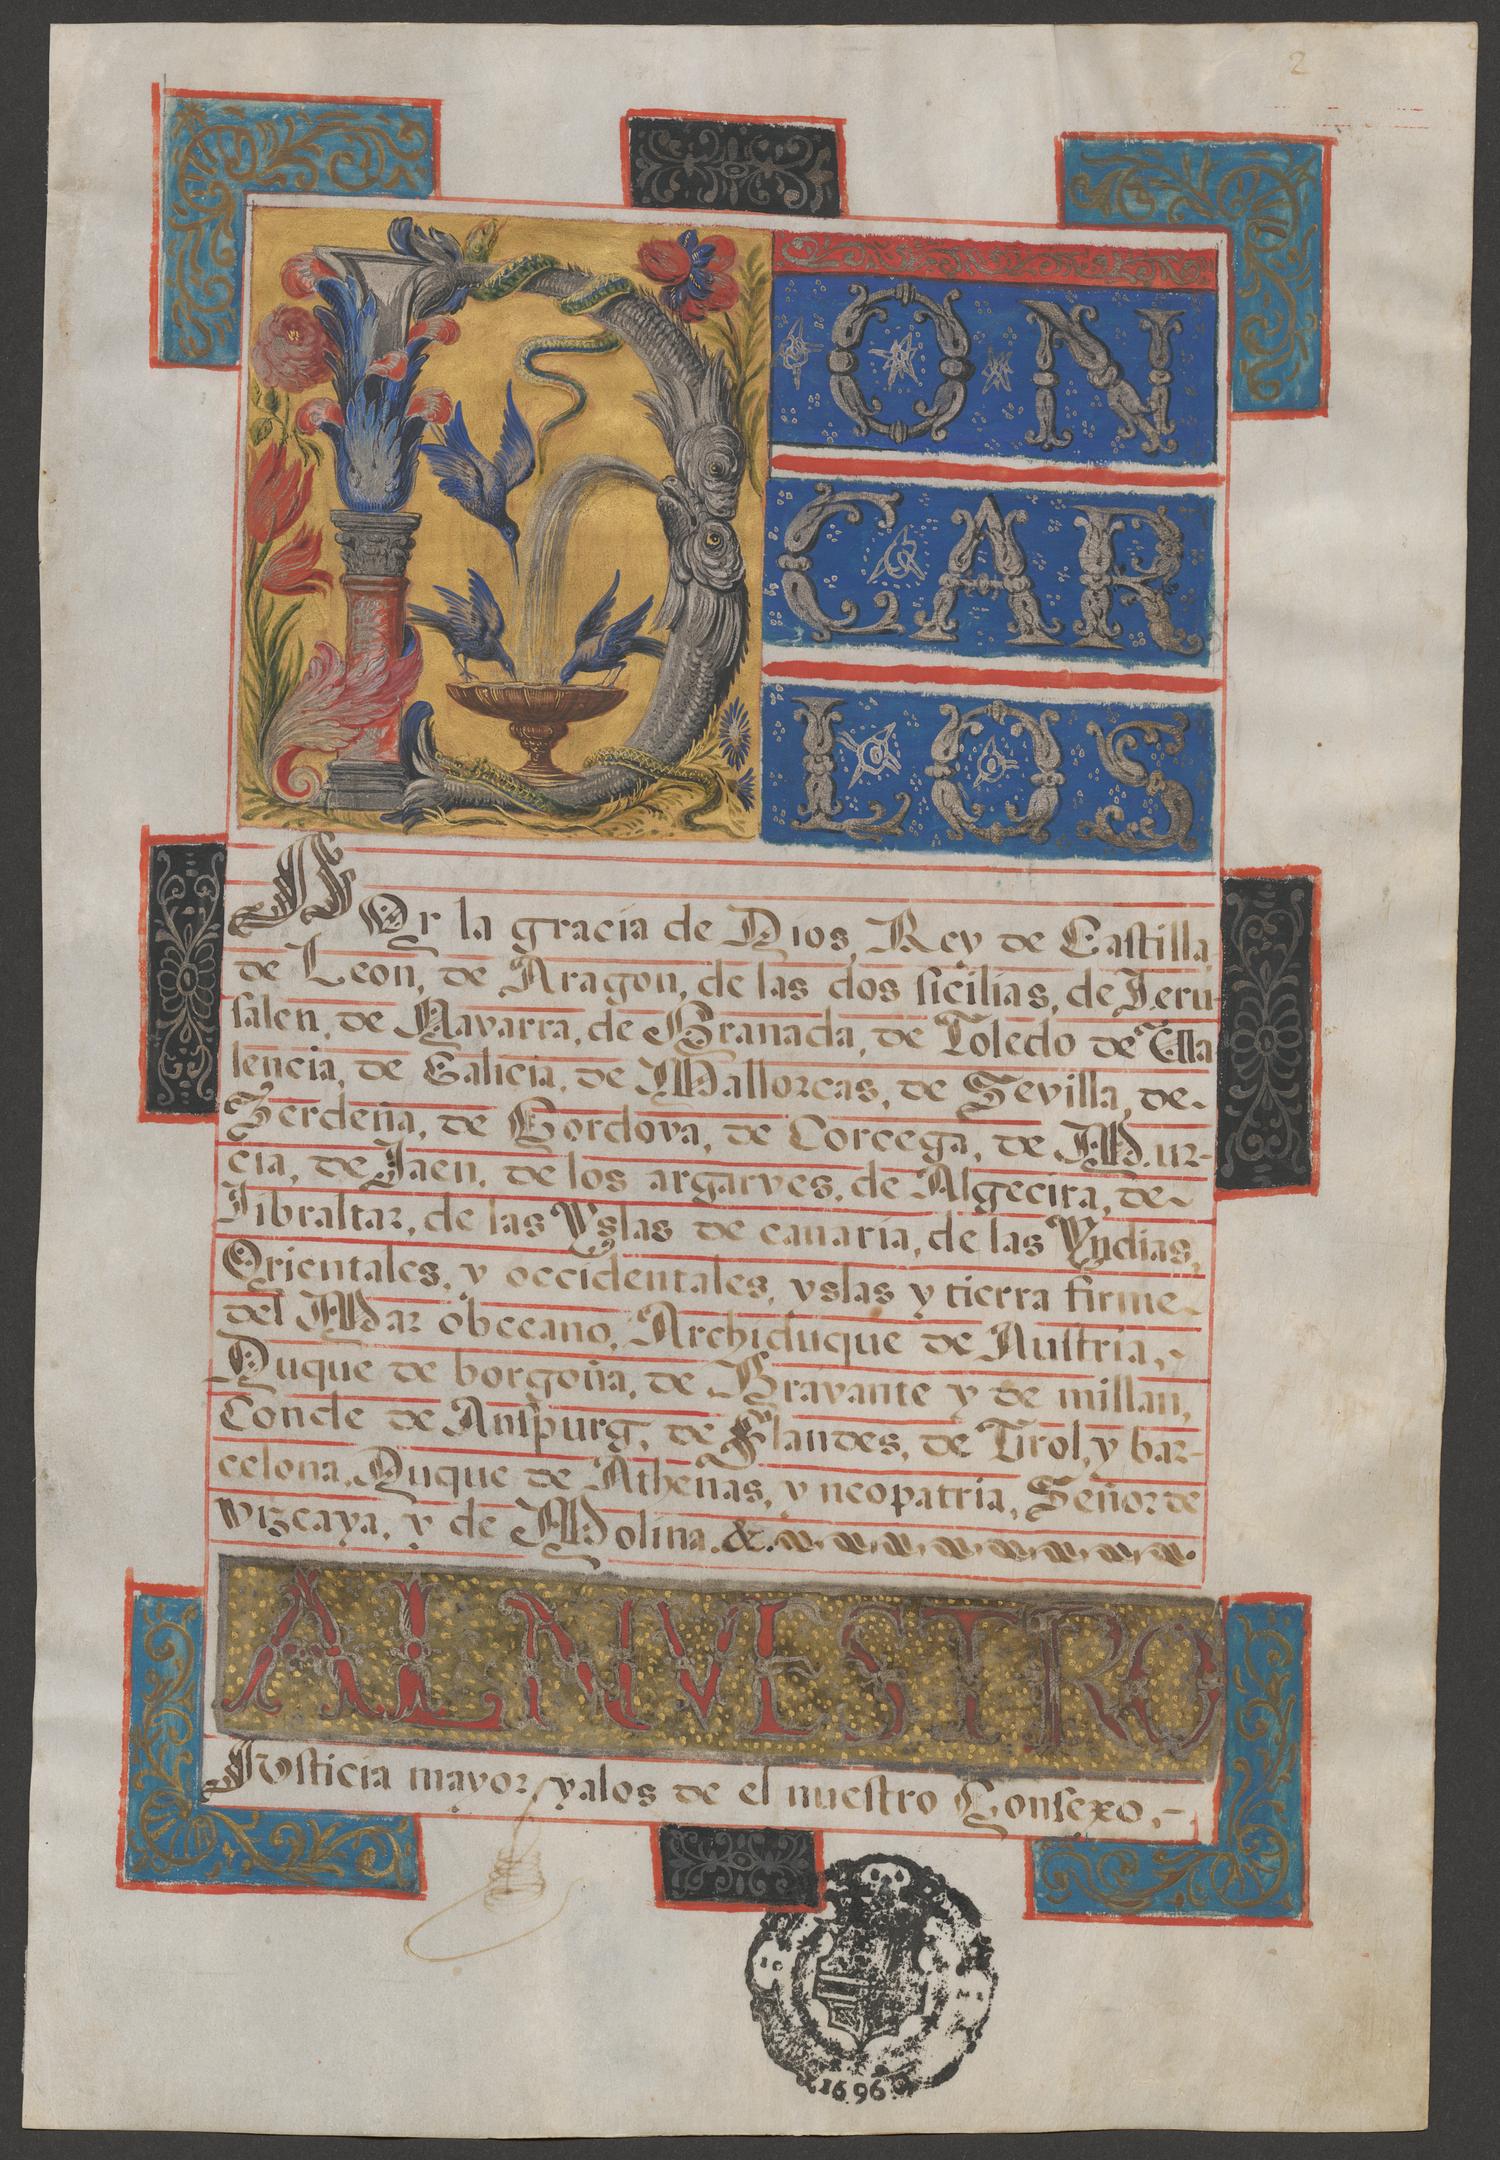 2
DON
CAR
LOS
POr la gracia de Dios, Rey de Castilla,
de Leon, de Aragon, de las dos sicilias, de Ieru-
salen, de Navarra, de Granada, de Toledo de Va
lencia, de Galicia, de Mallorcas, de Sevilla, de
Serdeña, de Cordova, de Corcega, de Mur-
cia, de Jaen, de los argarves, de Algecira, de
Jibraltar, de las Yslas de canaria, de las Yndias,
Orientales, y occidentales, yslas y tierra firme
del Mar obceano, Archiduque de Austria,
Duque de borgoña, de Bravante y de millan,
Conde de Auspurg, de Flandes, de Tirol, y bar-
celona, Duque de Atheñas, y neopatria, Señor de
vizcaya, y de Molina. &.
AL NVESTRO
Justicia mayor, yalos de el nuestro Consexo,-
1696